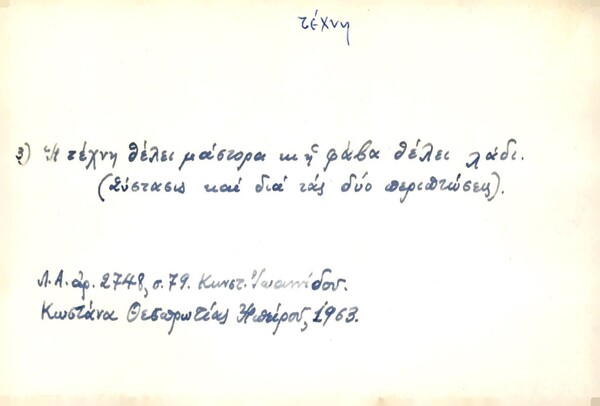 τέχνη
3) Ἡ τέχνη θέλει μάστορα κ' ἡ φάβα θέλει λάδι.
(Σύστασις καί διά τάς δύο περιπτώσεις).
Λ.Α. ἀρ. 2748, σ. 79. Κωνστ. Ἰωαννίδου.
Κωστάνα Θεσπρωτίας Ἠπείρου, 1963.